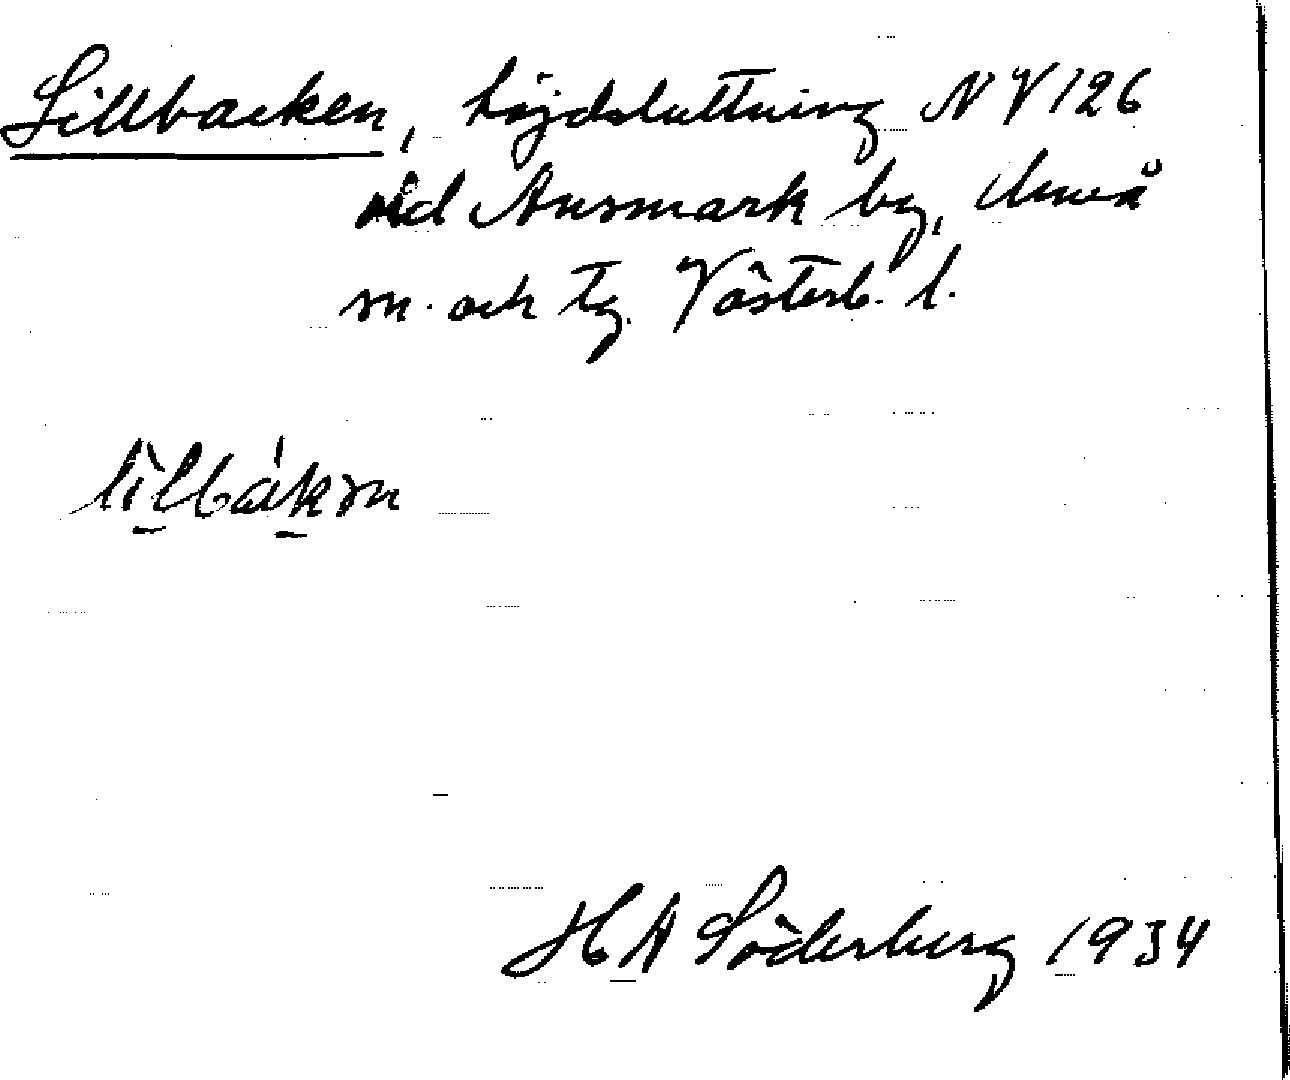 Lillbacken, höjdsluttning NV 126
vid Ansmark by, Umeå
sn. och tg. Västerb. l.
lìlbák̠ən
H A Söderberg 1934